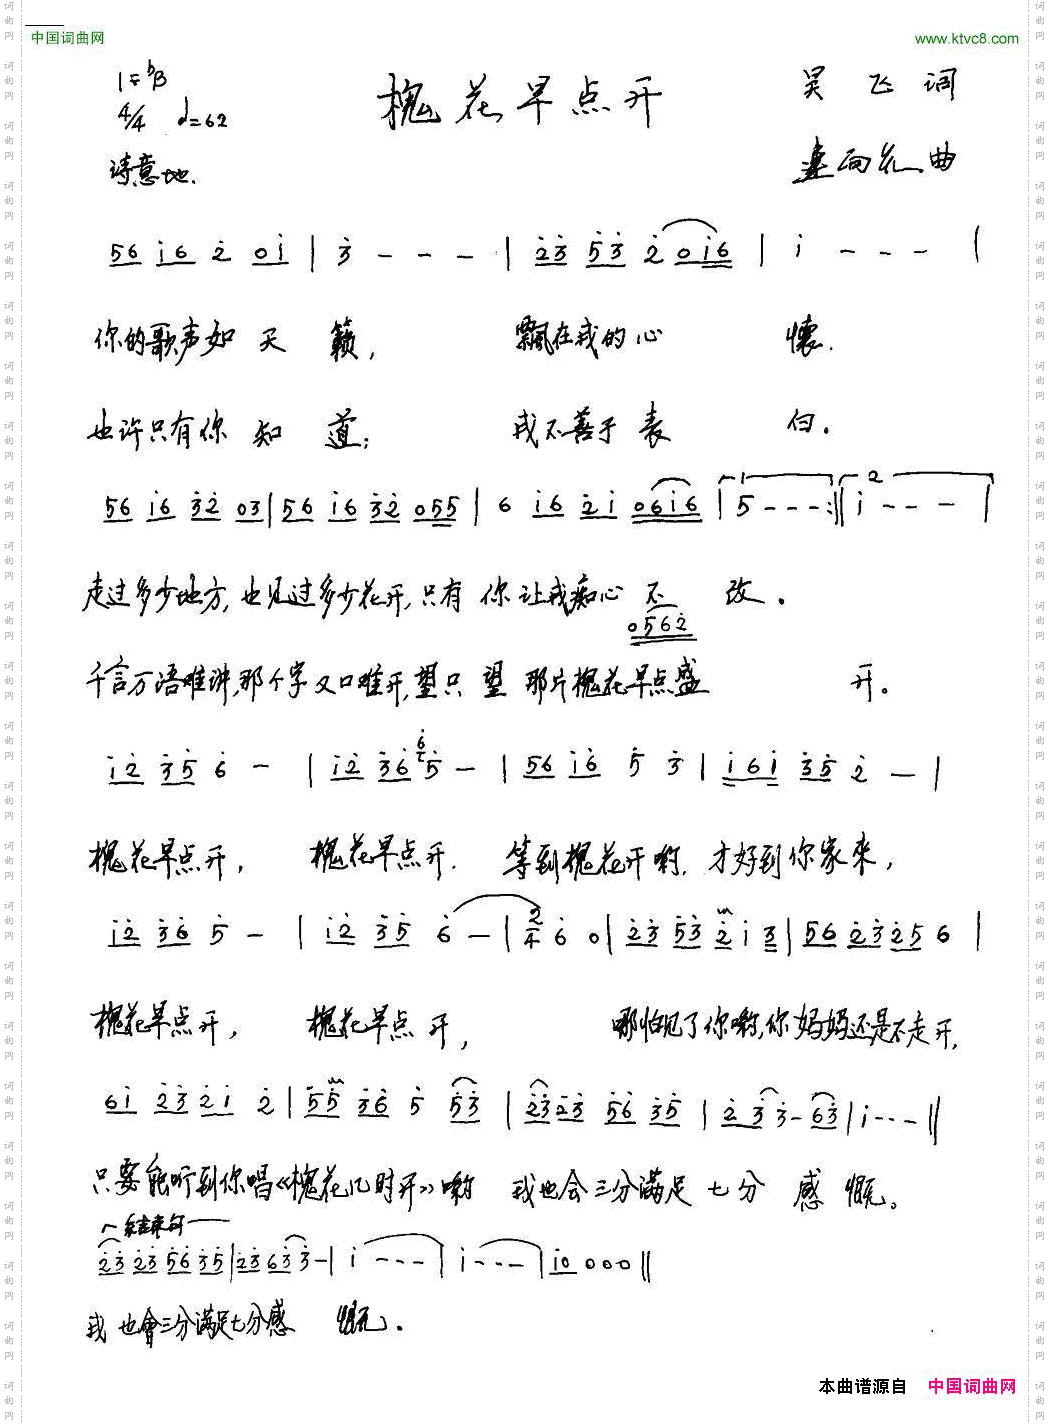 中国词曲网
www.ktvc8.com
1=♭B
4/4 ♩=62
槐花早点开
吴飞词
曲
诗意地.
56 i6 2 0i | 3 - - - | 23 53 2 0i6 | i - - - |
你的歌声如天籁, 飘在我的心怀.
也许只有你知道; 我不善于表白。
56 i6 32 03 | 56 i6 32 055 | 6 i6 2i 06i6 | 1 5 - - - :|| 2 i - - - |
走过多少地方,也见过多少花开,只有你让我痴心不改。
0562
千言万语难讲,那个字又口难开,望只望那片槐花早点盛开。
i2 35 6 - | i2 36 6 5 - | 56 i6 5 3 | i6i 35 2 - |
槐花早点开, 槐花早点开. 等到槐花开哟. 才好到你家来,
i2 36 5 - | i2 35 6 - | 2/4 6 0 | 23 53 2 i 3 | 56 23 25 6 |
槐花早点开, 槐花早点开, 哪怕见了你哟,你妈妈还是不走开,
6i 23 2i 2 | 55 36 5 53 | 23 23 56 35 | 2 3 3 - 63 | i - - - ||
只要能听到你唱《槐花几时开》哟 我也会三分满足七分感慨。
结束句
23 23 56 35 | 23 63 3 - | i - - - | i - - - | i0 0 0 0 ||
我也會三分满足七分感慨.
本曲谱源自 中国词曲网